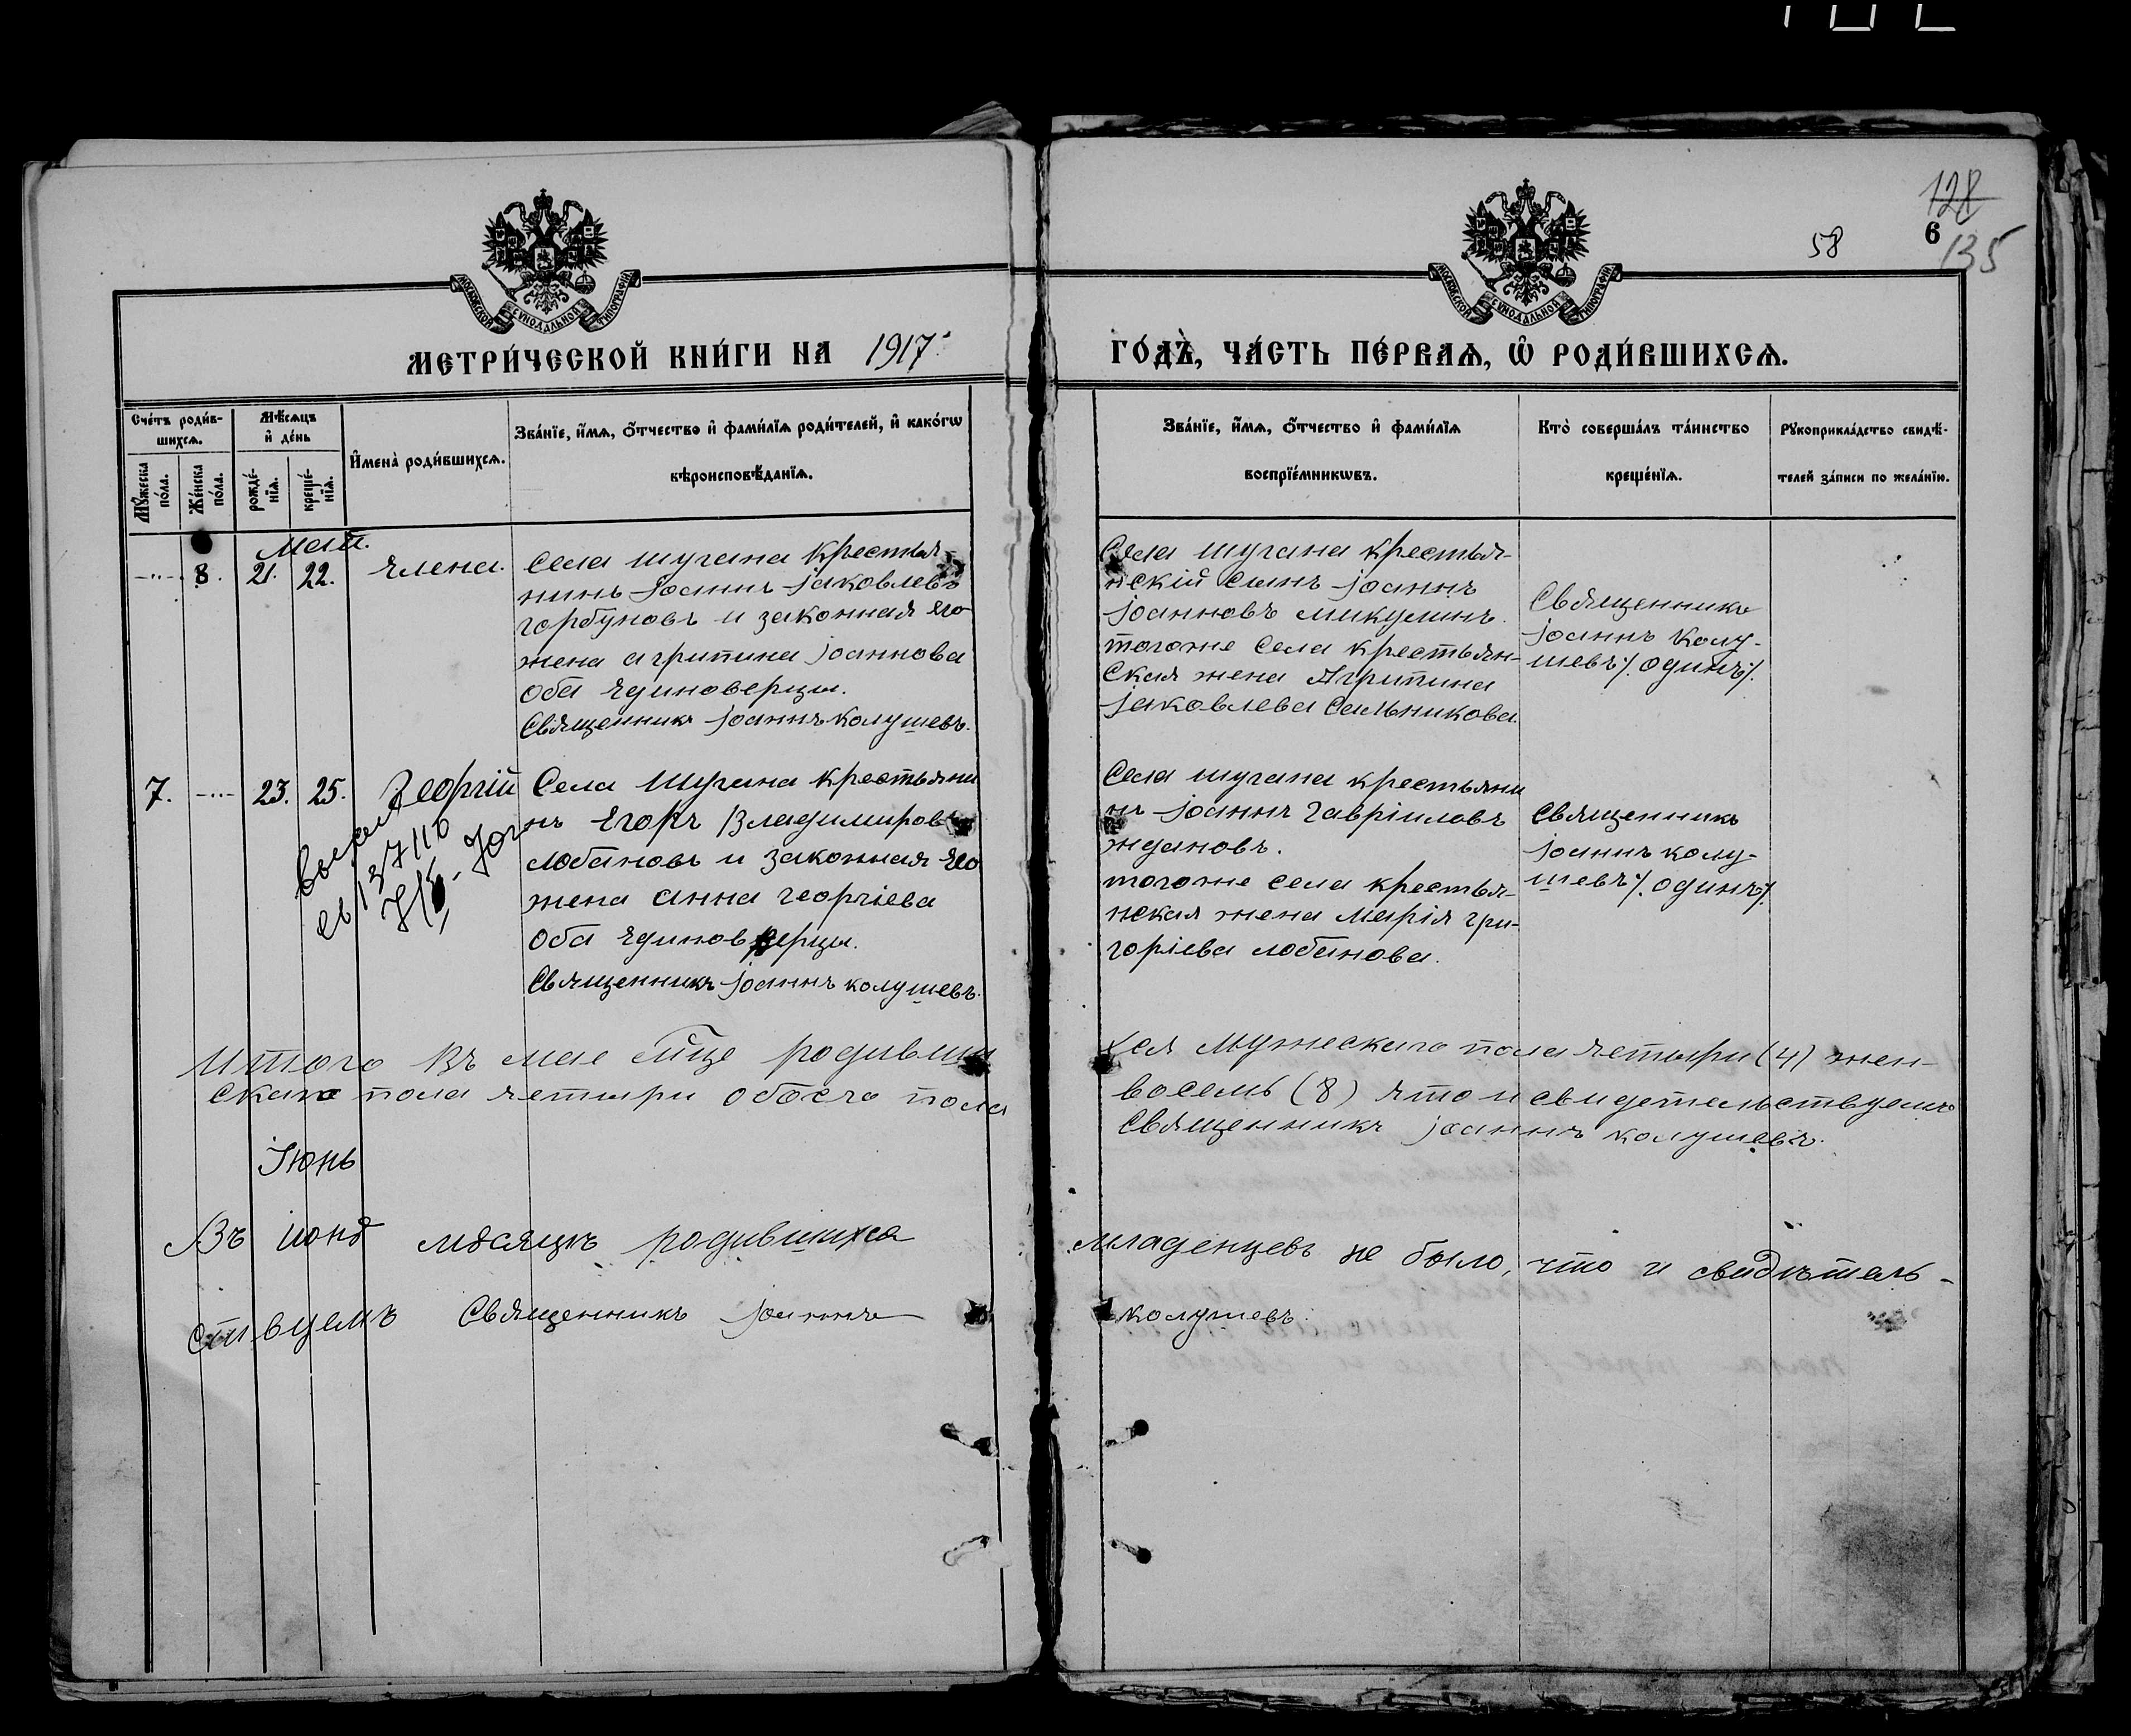 128
6
58
135
МОСКОВСКОЙ СѴНОДАЛЬНОЙ ТИПОГРАФІИ
МОСКОВСКОЙ СѴНОДАЛЬНОЙ ТИПОГРАФІИ
МЕТРИ́ЧЕСКОЙ КНИ́ГИ НА 1917 ГО́ДЪ, ЧА́СТЬ ПЕ́РВАѦ, Ѡ҆ РОДИ́ВШИХСѦ.
Сче́тъ роди́в-
шихсѧ.
Мꙋ́жеска по́ла.
Же́нска по́ла.
Мѣ́сѧцъ
и҆ де́нь
рожде́-
нїѧ.
креще́-
нїѧ.
И҆мена̀ роди́вшихсѧ.
Зва́нїе, и҆́мѧ, ѻ҆́тчество и҆ фами́лїѧ роди́телей, и҆ како́гѡ
вѣроисповѣ́данїѧ.
Зва́нїе, и҆́мѧ, ѻ҆́тчество и҆ фами́лїѧ
воспрїе́мникѡвъ.
Кто̀ соверша́лъ та́инство
креще́нїѧ.
Рꙋкоприкла́дство свидѣ́-
телей за́писи по жела́нїю.
Маій.
8. 21. 22. Елена.
Села Шугана крестья-
нинъ Іоаннъ Іаковлевъ
Горбуновъ и законная его
жена Агрипина Іоаннова
оба единоверцы.
Священникъ Іоаннъ Колушевъ.
Села Шугана крестья-
нский сынъ Іоаннъ
Іоанновъ Микулинъ.
тогоже села крестьян-
ская жена Агрипина
Іаковлева Сальникова.
Священникъ
Іоаннъ Колу-
шевъ /. одинъ /.
7. 23. 25. Георгій
Села Шугана крестьяни
нъ Егоръ Владимировъ
Лобановъ и законная его
жена Анна Георгіева
оба единоверцы.
Священникъ Іоаннъ Колушевъ.
Села Шугана крестьяни
нъ Іоаннъ Гавріиловъ
Ждановъ.
тогоже села крестья-
нская жена Марія Гри-
горіева Лобанова.
Священникъ
Іоаннъ Колу-
шевъ /. одинъ /.
Итого въ мае мце родивши хся мужескаго пола четыри (4) жен-
скаго пола четыри обоего пола восемь (8) что и свидетельствуемъ
Священникъ Іоаннъ Колушевъ.
Іюнь
Въ июнѣ мѣсяцѣ родившихся младенцевъ не было, что и свидѣтель-
ствуемъ Священникъ Іоаннъ Колушевъ.